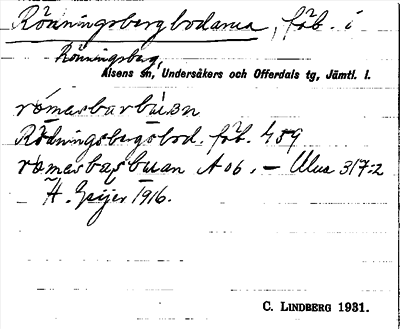 Rönningsbergbodarna, fäb. i
Rönningsberg,
Alsens sn, Undersåkers och Offerdals tg, Jämtl. l.
Rödningsbergsbod. fäb. 459
A 06. — Ulma 317:2
H. Geijer 1916.
C. LINDBERG 1931.